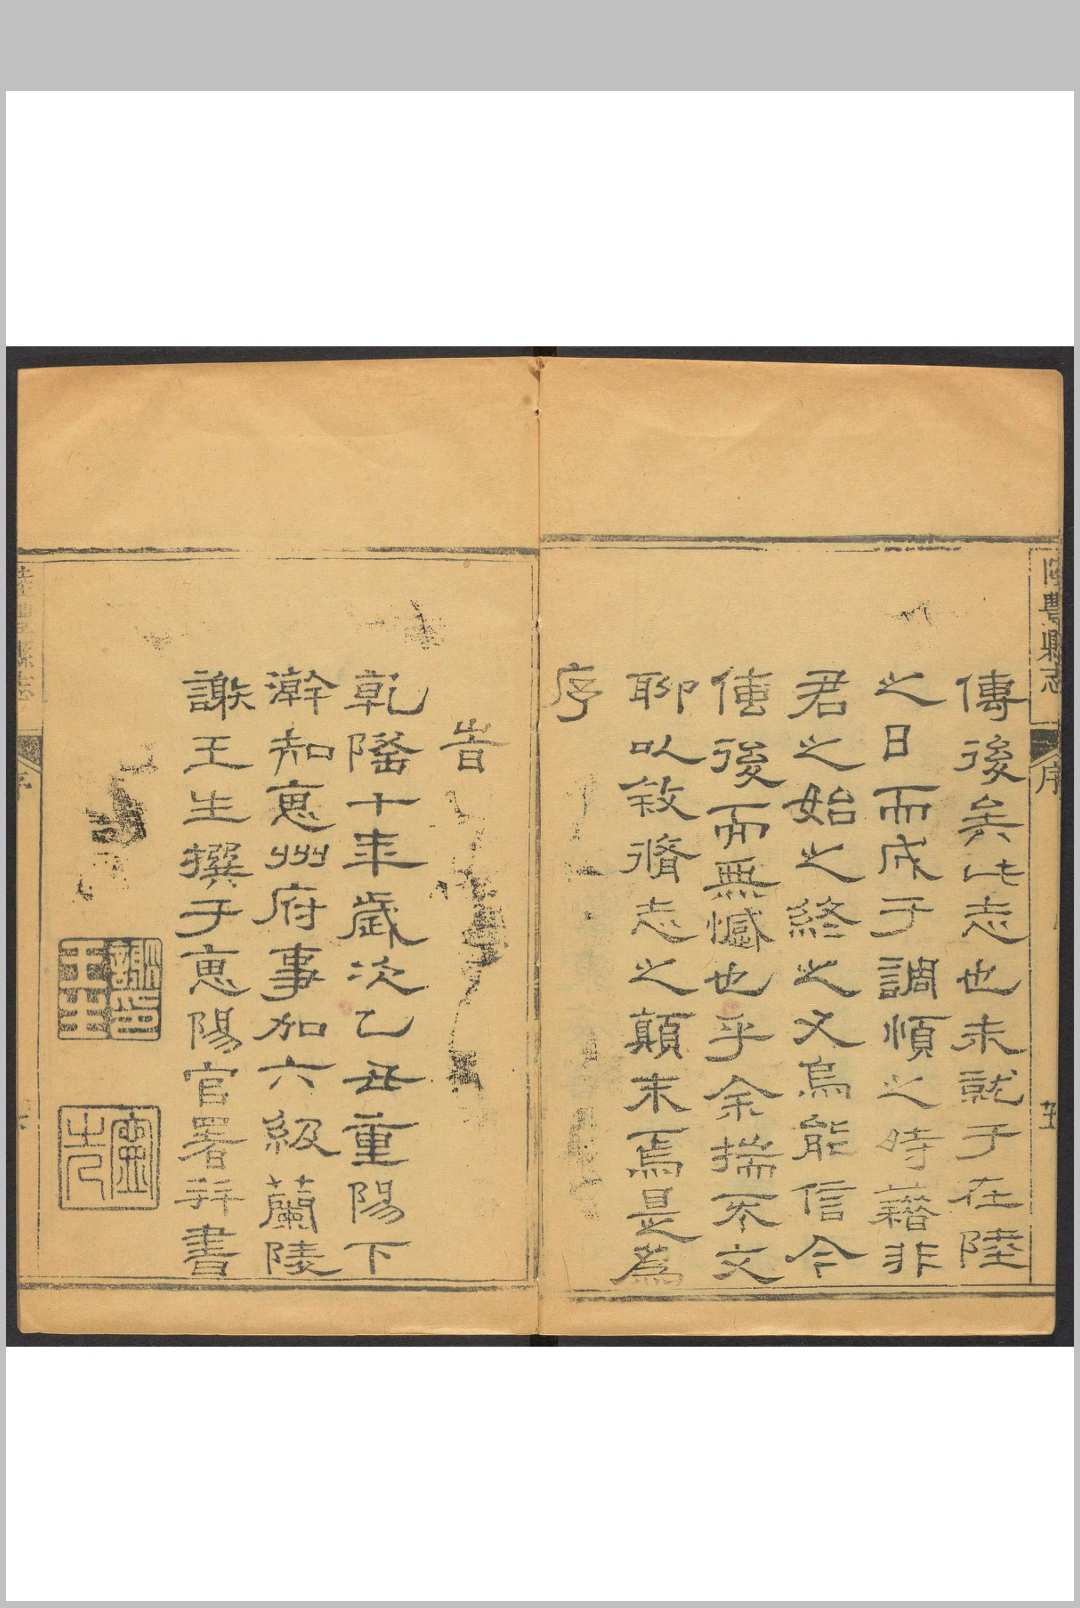 陸豐縣志
序
五
傳後矣此志也未就于在陸
之日而成于調煩之時藉非
君之始之終之又烏能信今
傳後而無憾也乎余揣不文
聊以敘脩志之顛末焉是爲
序
旹
乾隆十年歲次乙丑重陽下
澣知惠州府事加六級蘭陵
謝王生撰于惠陽官署并書
陸豐縣志
序
謝王生印